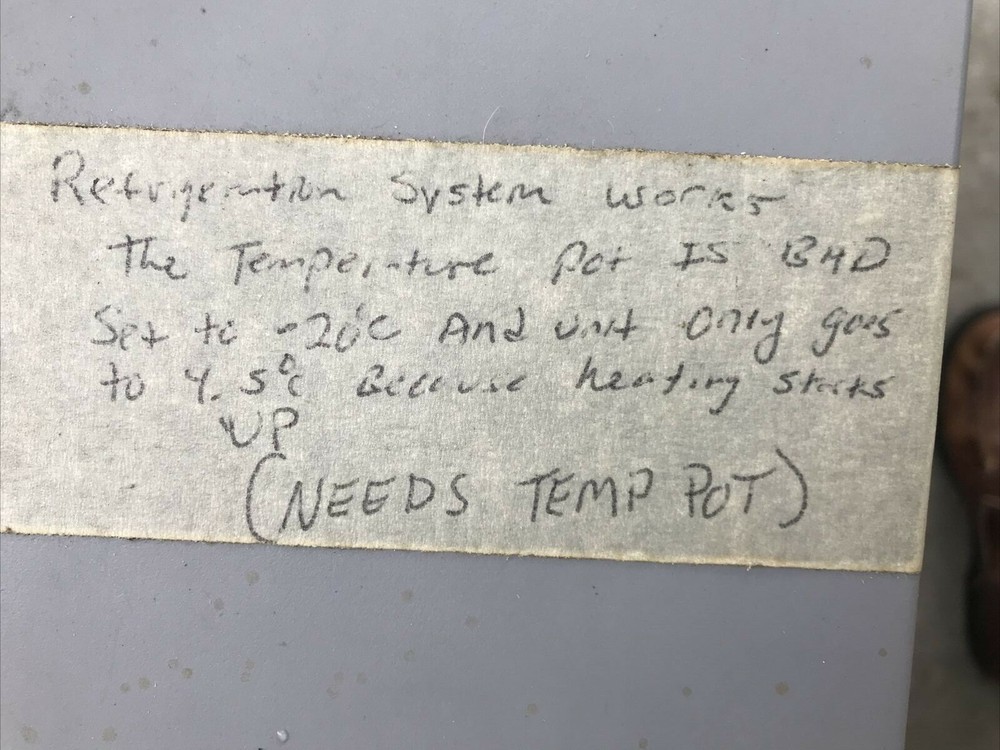 Refrigeration System works
The Temperature Pot IS BAD
Set to -20°C And unit only goes
to 4.5°C Because heating starts
UP
(NEEDS TEMP POT)